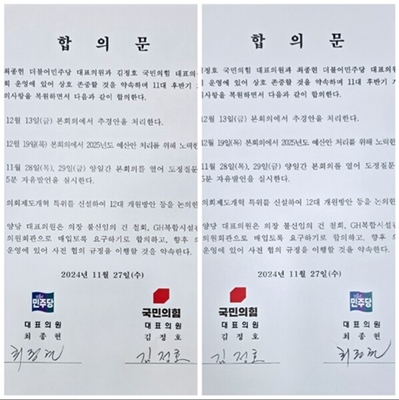 합 의 문
최종현 더불어민주당 대표의원과 김정호 국민의힘 대표의
회 운영에 있어 상호 존중할 것을 약속하며 11대 후반기
의사항을 복원하면서 다음과 같이 합의한다.
12월 13일(금) 본회의에서 추경안을 처리한다.
12월 19일(목) 본회의에서 2025년도 예산안 처리를 위해 노력한
11월 28일(목), 29일(금) 양일간 본회의를 열어 도정질문
5분 자유발언을 실시한다.
의회제도개혁 특위를 신설하여 12대 개원방안 등을 논의한
양당 대표의원은 의장 불신임의 건 철회, GH복합시설관
의원회관으로 매입토록 요구하기로 합의하고, 향후 의
운영에 있어 사전 협의 규정을 이행할 것을 약속한다.
2024년 11월 27일(수)
민주당
대 표 의 원
최 종 현
최종현
국민의힘
대 표 의 원
김 정 호
김 정 호
합 의 문
김정호 국민의힘 대표의원과 최종현 더불어민주당 대표의
회 운영에 있어 상호 존중할 것을 약속하며 11대 후반기
의사항을 복원하면서 다음과 같이 합의한다.
12월 13일(금) 본회의에서 추경안을 처리한다.
12월 19일(목) 본회의에서 2025년도 예산안 처리를 위해 노력한
11월 28일(목), 29일(금) 양일간 본회의를 열어 도정질문
5분 자유발언을 실시한다.
의회제도개혁 특위를 신설하여 12대 개원방안 등을 논의한
양당 대표의원은 의장 불신임의 건 철회, GH복합시설
의원회관으로 매입토록 요구하기로 합의하고, 향후 의
운영에 있어 사전 협의 규정을 이행할 것을 약속한다.
2024년 11월 27일(수)
국민의힘
대 표 의 원
김 정 호
김 정 호
민주당
대 표 의 원
최 종 현
최종현